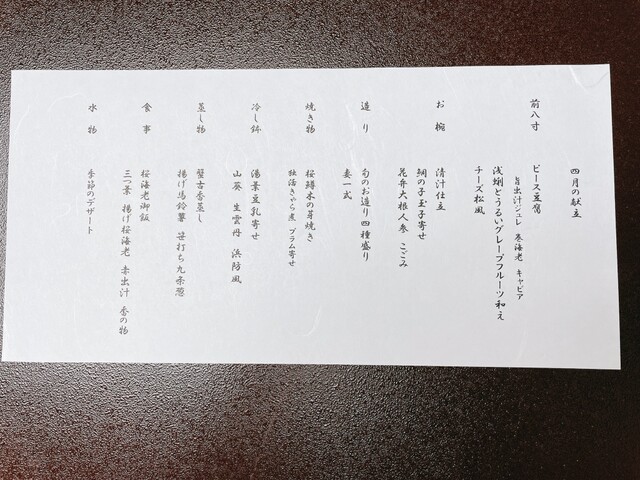 四月の献立
前八寸
ピース豆腐
旨出汁ジュレ 巻海老 キャビア
浅蜊とうるいグレープフルーツ和え
チーズ松風
お椀
清汁仕立
鯛の子玉子寄せ
花弁大根人参 こごみ
造り
旬のお造り四種盛り
妻一式
焼き物
桜鱒木の芽焼き
独活きゃら煮 プラム寄せ
冷し鉢
湯葉豆乳寄せ
山葵 生雲丹 浜防風
蒸し物
蟹古香蒸し
揚げ馬鈴薯 笹打ち九条葱
食事
桜海老御飯
三つ葉 揚げ桜海老 赤出汁 香の物
水物
季節のデザート